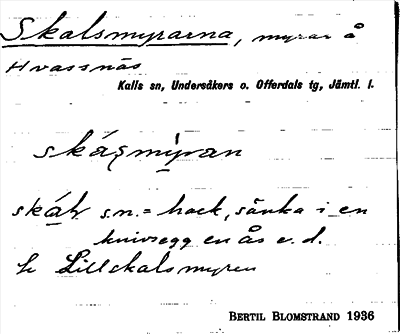 Skalsmyrarna, myrar å
Hvassnäs
Kalls sn, Undersåkers o. Offerdals tg, Jämtl. l.
skáʂmỳran
skáḷ, s.n. = hack, sänka i en
knivsegg en ås e.d.
h Lillskalsmyren
BERTIL BLOMSTRAND 1936